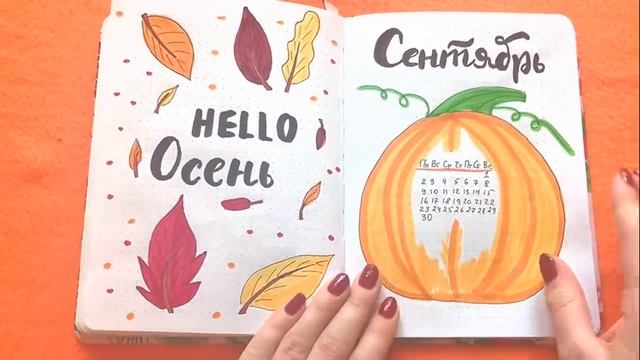 HELLO
Осень
Сентябрь
Пн Вт Ср Чт Пт Сб Вс
1
2 3 4 5 6 7 8
9 10 11 12 13 14 15
16 17 18 19 20 21 22
23 24 25 26 27 28 29
30